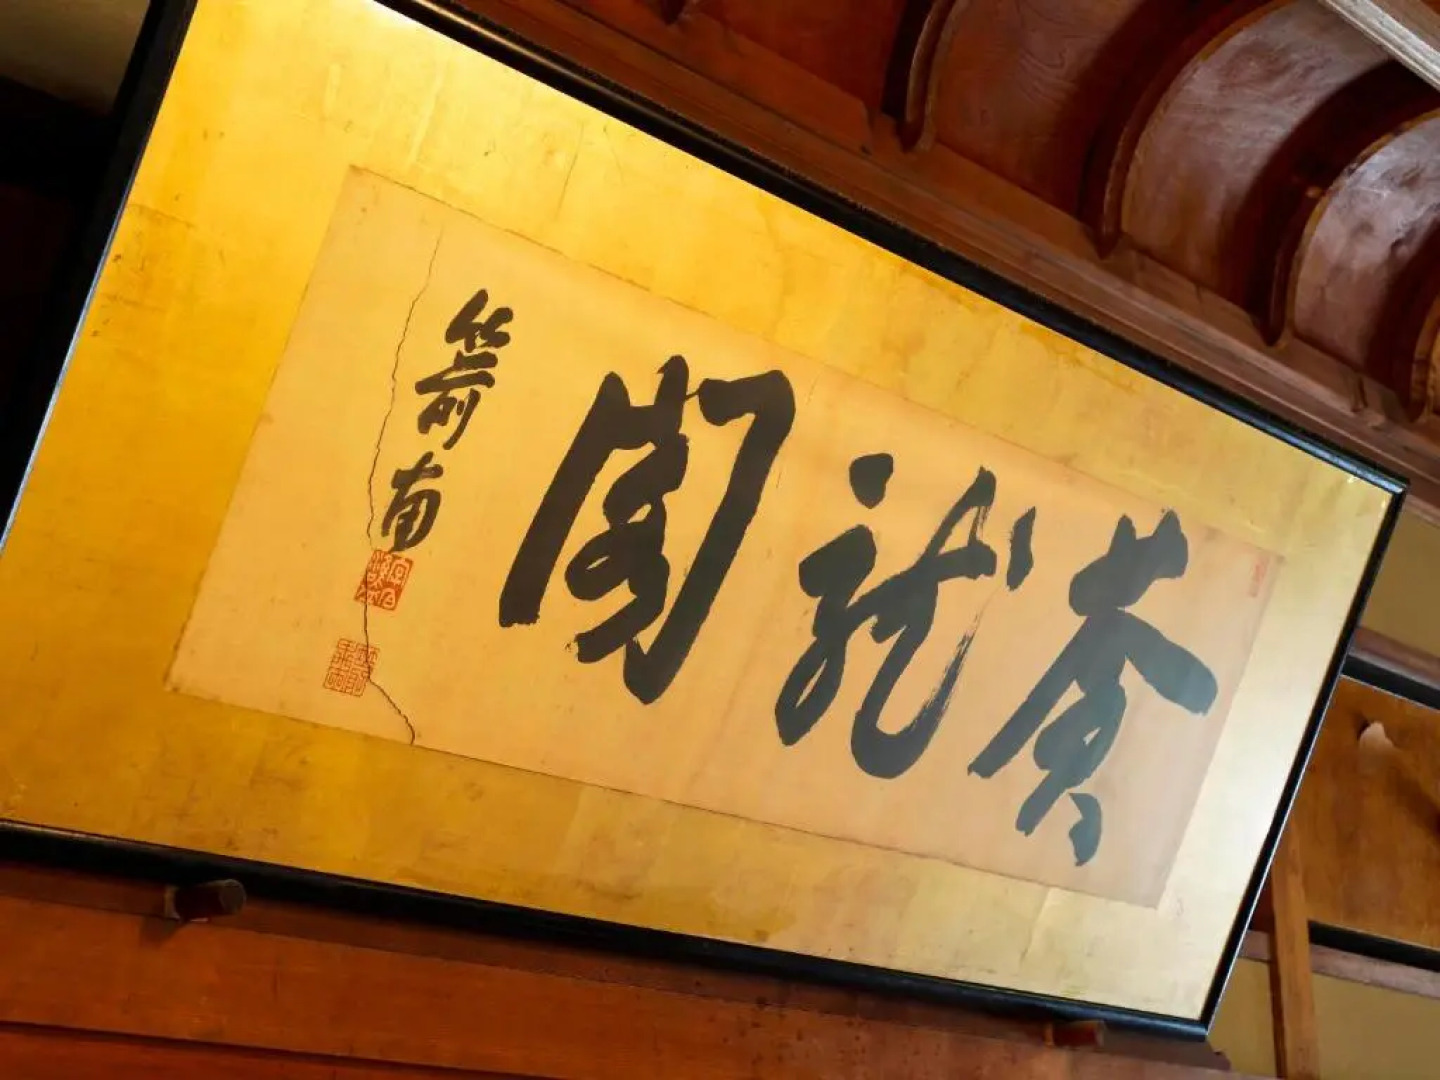 蒼龍閣
箭南